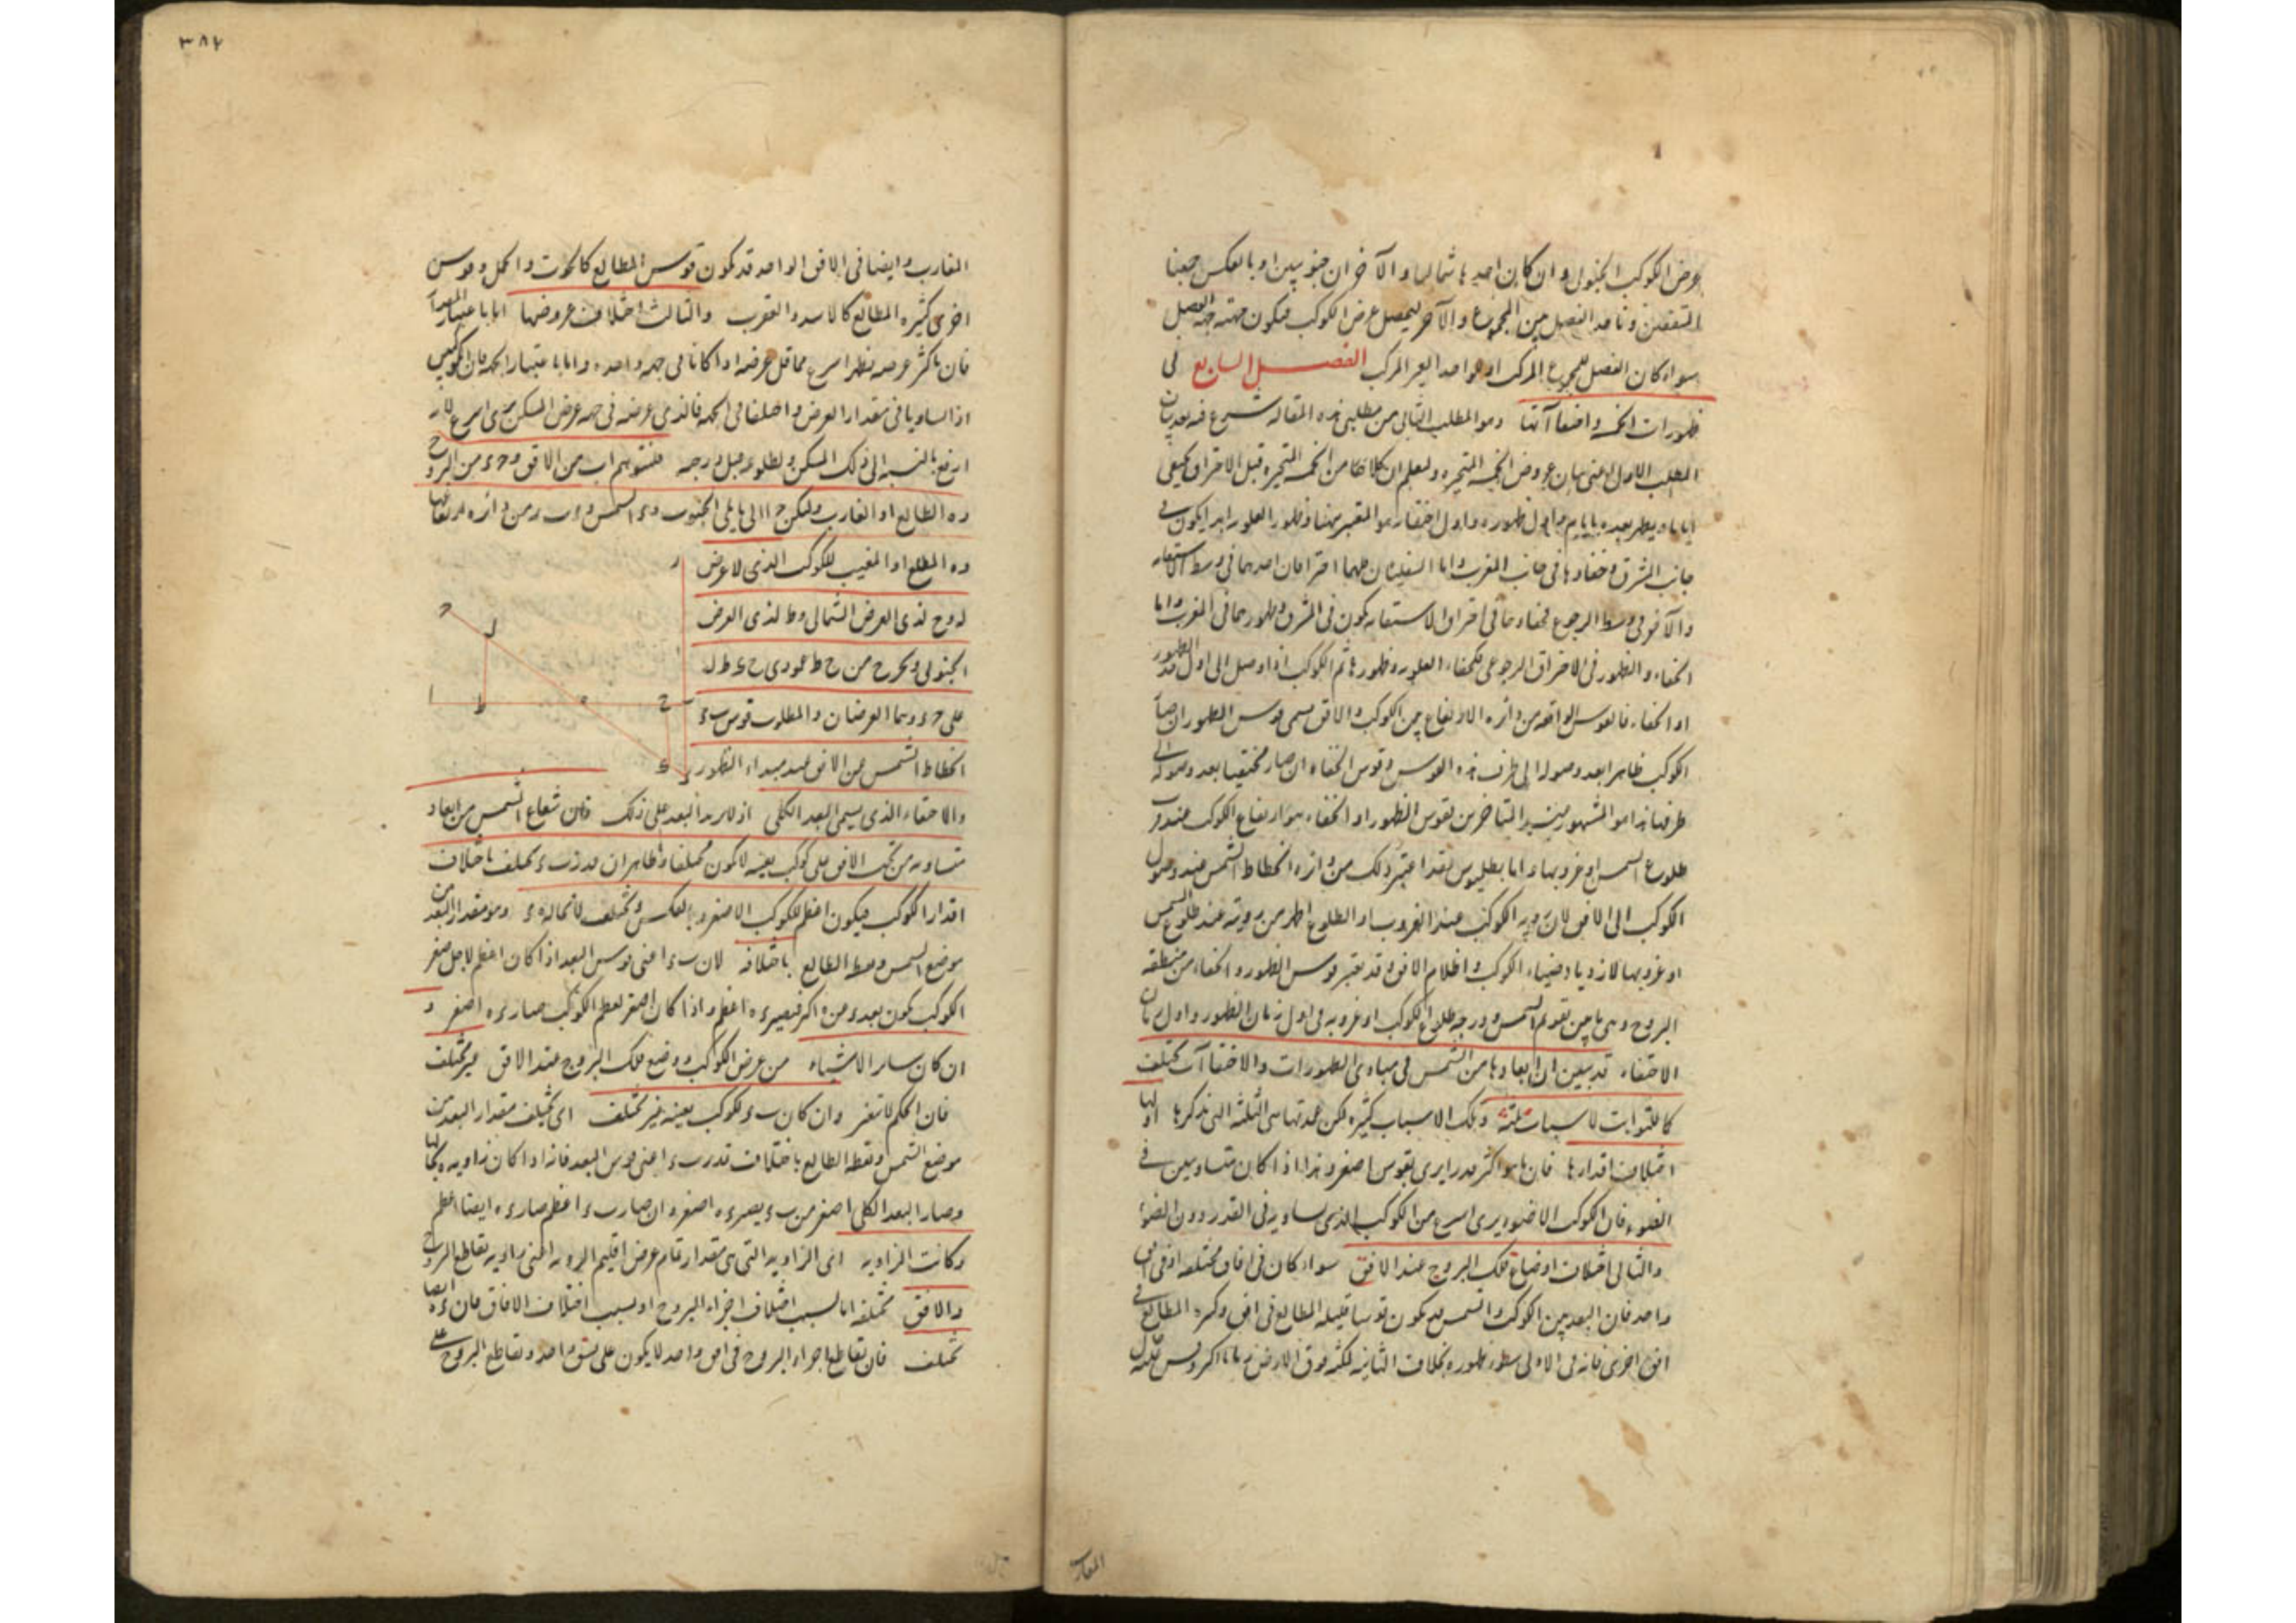 عرض الكوكب الجنوبى وان كان احدها شماليا والآخران جنوبيين او بالعكس جمعنا
المتفقين وناخذ الفضل بين المجموع والآخر ليحصل عرض الكوكب فيكون جهته جهة الفضل
سواء كان الفضل للمجموع المركب او لواحد الغير المركب الفصل السابع فى
ظهورات الخمسة واختفاآتها وهو المطلب الثانى من مطلبى هذه المقالة شرع فيه بعد بيان
المطلب الاول اعنى بيان عروض الخمسة المتحيرة وليعلم ان كلا من الخمسة المتحيرة قبل الاحتراق يختفى
اياما ويظهر بعده بايام واول ظهوره واول اختفاره هو المعتبر هنا وظهور العلوية ابدا يكون فى
جانب المشرق وخفاؤها فى جانب المغرب واما السفليان فلهما احتراقان احدهما فى وسط الاستقامة
والآخر فى وسط الرجوع فخفاؤهما فى احتراق الاستقامة يكون فى المشرق وظهورهما فى المغرب واما
الخفاء والظهور فى الاحتراق الرجوعى فكخفاء العلوية وظهورها ثم الكوكب اذا وصل الى اول حد الظهور
او الخفاء فالقوس الواقعة من دائرة الارتفاع بين الكوكب والافق يسمى قوس الظهور ان صار
الكوكب ظاهرا بعد وصوله الى طرف هذه القوس وقوس الخفاء ان صار مختفيا بعد وصوله الى
طرفها هذا هو المشهور بين المتاخرين فقوس الظهور او الخفاء هو ارتفاع الكوكب عند قرب
طلوع الشمس او غروبها واما بطليموس فقد اعتبر ذلك من دائرة انحطاط الشمس عند وصول
الكوكب الى الافق لان رؤية الكوكب عند الغروب او الطلوع اظهر من رويته عند طلوع الشمس
او غروبها لازدياد ضياء الكوكب واظلام الافق وقد يعتبر قوس الظهور والخفاء من منطقة
البروج وهى ما بين تقويم الشمس ودرجة طلوع الكوكب او غروبه فى اول زمان الظهور واول زمان
الاختفاء قد تبين ان ابعادها من الشمس فى مبادى الظهورات والاختفاآت تختلف
كما للثوابت لاسباب ثلثة وتلك الاسباب كثيرة لكن عمدتها هى الثلثة التى نذكرها اولها
اختلاف اقدارها فان ما هو اكثر قدرا يرى بقوس اصغر وهذا اذا كان متساويين فى
الضوء فان الكوكب الاضوء يرى اسرع من الكوكب الذى يساويه فى القدر دون الضوء
والثانى اختلاف اوضاع فلك البروج عند الافق سواء كان فى افاق مختلفة او فى افق
واحد فان البعد بين الكوكب والشمس قد يكون قوسا قليلة المطالع فى افق وكثيرة المطالع فى
افق اخرى فانه فى الاولى ظهوره بخلاف الثانية لمكثه فوق الارض زمانا اكثر وليس
المغارب
٣٨٢
المغارب وايضا فى الافق الواحد قد يكون قوس المطالع كالحوت والحمل وقوس
اخرى كثيرة المطالع كالاسد والعقرب والثالث اختلاف عروضها اما باعتبار المقدار
فان ما كثر عرضه يظهر اسرع مما قل عرضه اذا كانا فى جهة واحدة واما باعتبار الجهة فان الكوكبين
اذا تساويا فى مقدار العرض واختلفا فى الجهة فالذى عرضه فى جهة عرض المسكن يرى اسرع لانه
ارفع بالنسبة الى ذلك المسكن ولطلوعه قبل درجه فلنتوهم اب من الافق وجء من البروج
وه الطالع او الغارب وليكن ا الى ما يلى الجنوب وء الشمس وء ب ز من دائرة ارتفاعها
وه المطلع او المغيب للكوكب الذى لا عرض
له وح لذى العرض الشمالى وط لذى العرض
الجنوبى ونخرج من ح ط عمودى ح ى ط ل
على جء وهما العرضان والمطلوب قوس بء
انحطاط الشمس عن الافق عند مبداء الظهور
ز
ج
ل
ا
ط
ه
ح
ى
ء
والاختفاء الذى يسمى البعد الكلى اذ لا يزيد البعد على ذلك فان شعاع الشمس من ابعاد
متساوية من تحت الافق على كوكب بعينه لا يكون مختلفا وظاهر ان قدر بء يختلف باختلاف
اقدار الكوكب فيكون اعظم للكوكب الاصغر وبالعكس ويختلف لا محالة هء وهو مقدار البعد بين
موضع الشمس ونقطة الطالع باختلافه لان بء اعنى قوس البعد اذا كان اعظم لاجل صغر
الكوكب يكون بعد ء من ه اكثر فيصير ءه اعظم واذا كان اصغر لعظم الكوكب صار ءه اصغر و
ان كان ساير الاشياء من عرض الكوكب ووضع فلك البروج عند الافق غير مختلف
فان الحكم لا يتغير وان كان بء لكوكب بعينه غير مختلف اى يختلف مقدار البعد بين
موضع الشمس ونقطة الطالع باختلاف قدر بء اعنى قوس البعد فانه اذا كان زاوية ه بحالها
وصار البعد الكلى اصغر من بء يصير ءه اصغر وان صار بء اعظم صار ءه ايضا اعظم
وكانت الزاوية اى الزاوية التى هى مقدار تمام عرض اقليم الروية اعنى زاوية تقاطع البروج
والافق مختلفة اما لسبب اختلاف اجزاء البروج او بسبب اختلاف الافاق فان ءه ايضا
تختلف فان تقاطع اجزاء البروج فى افق واحد لا يكون على نسق واحد وتقاطع البروج على